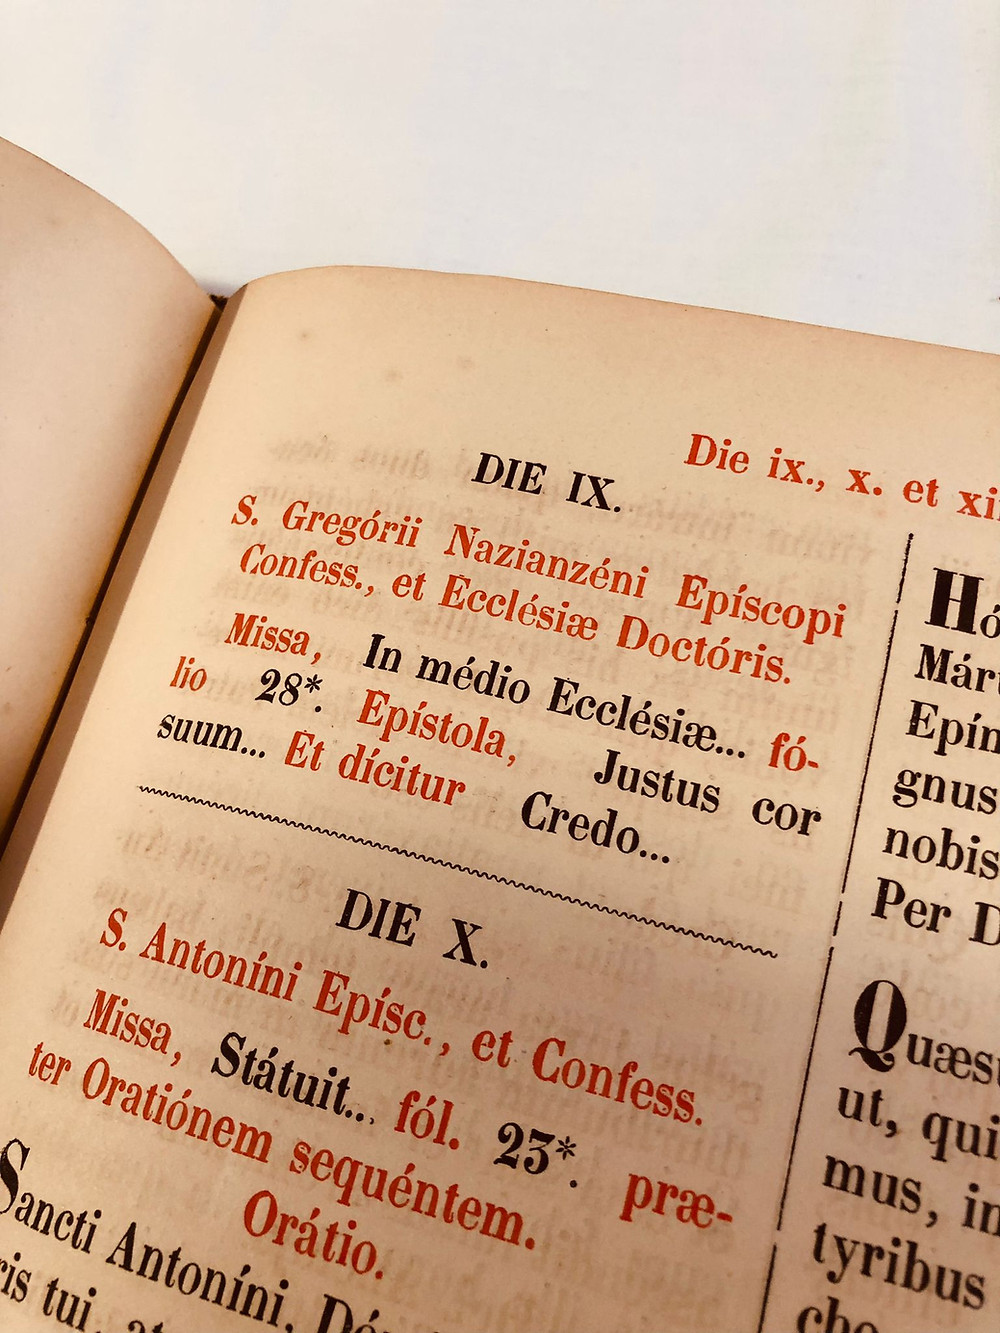 Die ix., x. et
DIE IX.
S. Gregórii Nazianzéni Epíscopi
Confess., et Ecclésiæ Doctóris.
Missa, In médio Ecclésiæ... fó-
lio 28*. Epístola, Justus cor
suum... Et dícitur Credo...
DIE X.
S. Antoníni Epísc., et Confess.
Missa, Státuit... fól. 23*. præ-
ter Oratiónem sequéntem.
Orátio.
Sancti Antoníni,
tui,
nobis
Per
ut, qui
mus,
tyribus